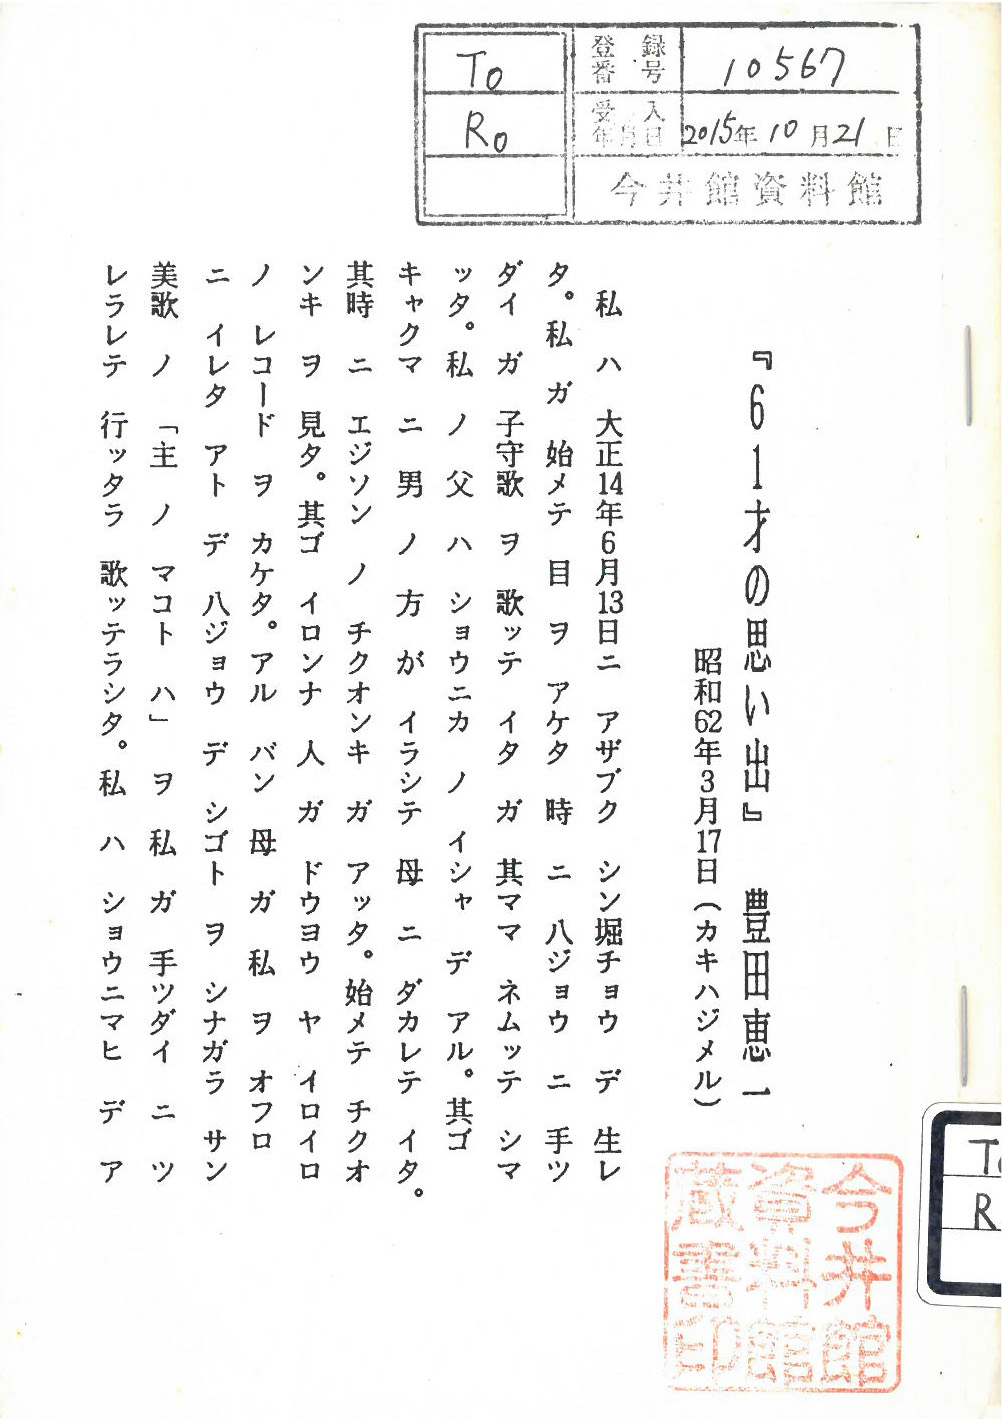 To
Ro
登録番号
10567
受入年月日
2015年10月21日
今井館資料館
『61才の思い出』 豊田恵一
昭和62年3月17日（カキハジメル）
私 ハ 大正14年6月13日ニ アザブク シン堀チョウ デ 生レ
タ。私 ガ 始メテ 目 ヲ アケタ 時 ニ 八ジョウ ニ 手ツ
ダイ ガ 子守歌 ヲ 歌ッテ イタ ガ 其ママ ネムッテ シマ
ッタ。私 ノ 父 ハ ショウニカ ノ イシャ デ アル。其ゴ
キャクマ ニ 男 ノ 方 が イラシテ 母 ニ ダカレテ イタ。
其時 ニ エジソン ノ チクオンキ ガ アッタ。始メテ チクオ
ンキ ヲ 見タ。其ゴ イロンナ 人 ガ ドウヨウ ヤ イロイロ
ノ レコード ヲ カケタ。アル バン 母 ガ 私 ヲ オフロ
ニ イレタ アト デ 八ジョウ デ シゴト ヲ シナガラ サン
美歌 ノ 「主 ノ マコト ハ」 ヲ 私 ガ 手ツダイ ニ ツ
レラレテ 行ッタラ 歌ッテラシタ。私 ハ ショウニマヒ デ ア
今井館
資料館
蔵書印
To
R